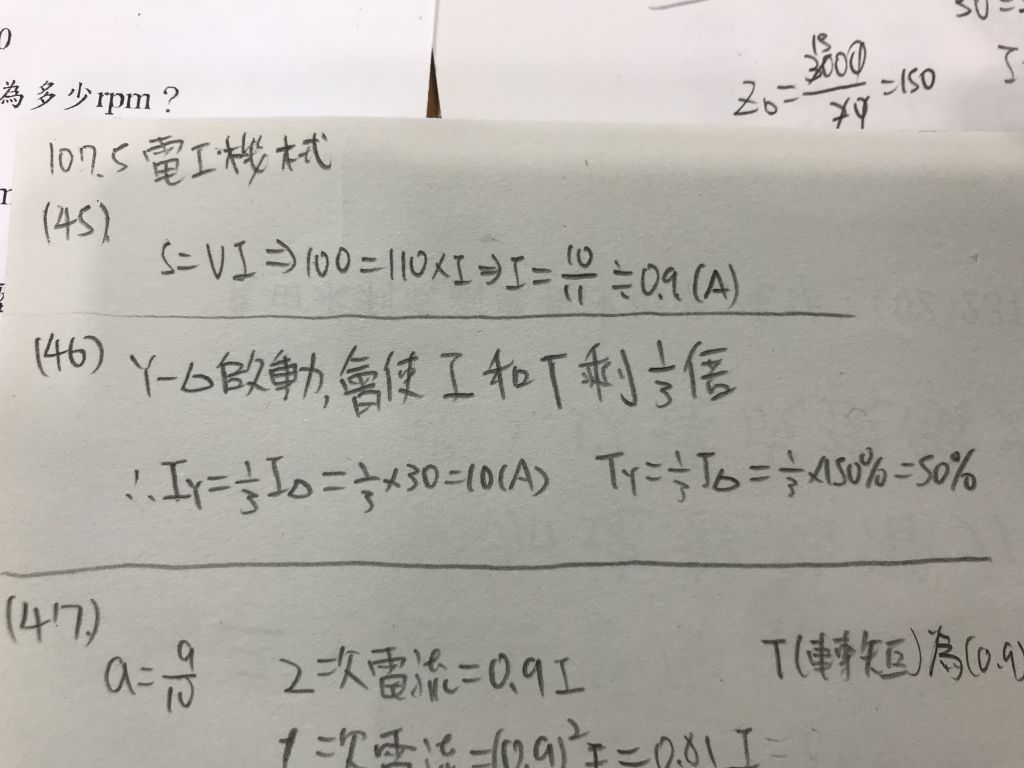 為多少rpm？
Z₀=3000/20=150
107.5 電工機械
(45).
S=VI⇒100=110×I⇒I=10/11≒0.9(A)
(46) Y-Δ啟動,會使I和T剩1/3倍
∴I_Y=1/3 I_Δ=1/3×30=10(A) T_Y=1/3 T_Δ=1/3×150%=50%
(47.)
a=9/10 2二次電流=0.9I T(轉矩)為(0.9)
1二次電流=(0.9)²I=0.81I=